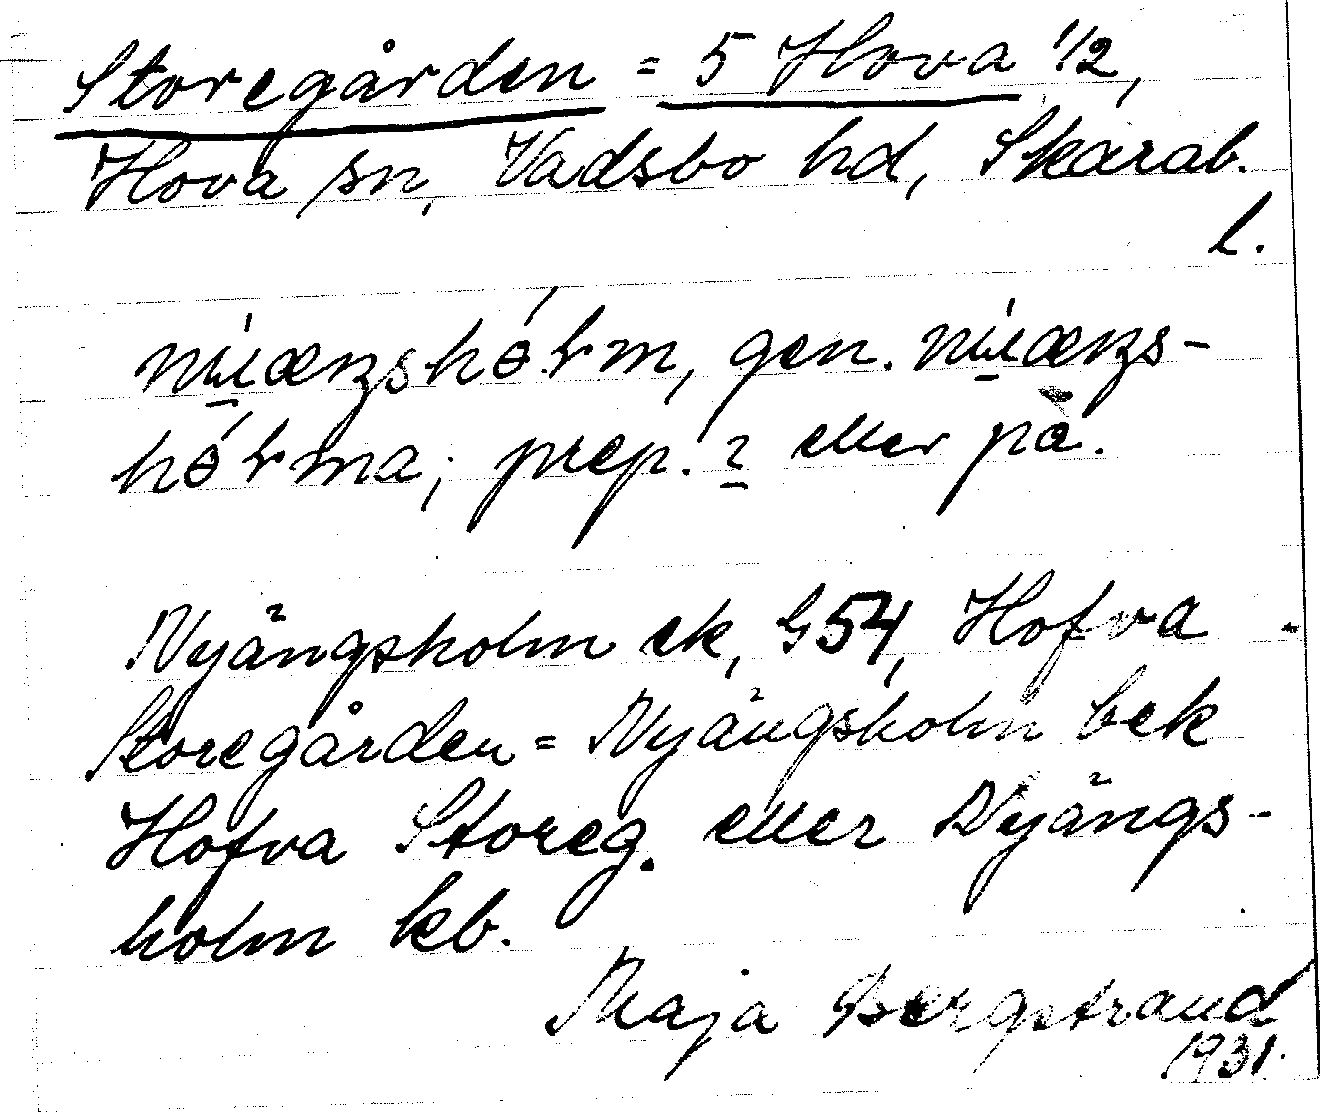 Storegården = 5 Hova 1/2,
Hova sn, Vadsbo hd, Skarab.
l.
gen.
prep. eller på.
Nyängsholm ek, G54, Hofva
Storegården = Nyängsholm bek
Hofva Storeg. eller Nyängs-
holm kb.
Maja Bergstrand
1931.